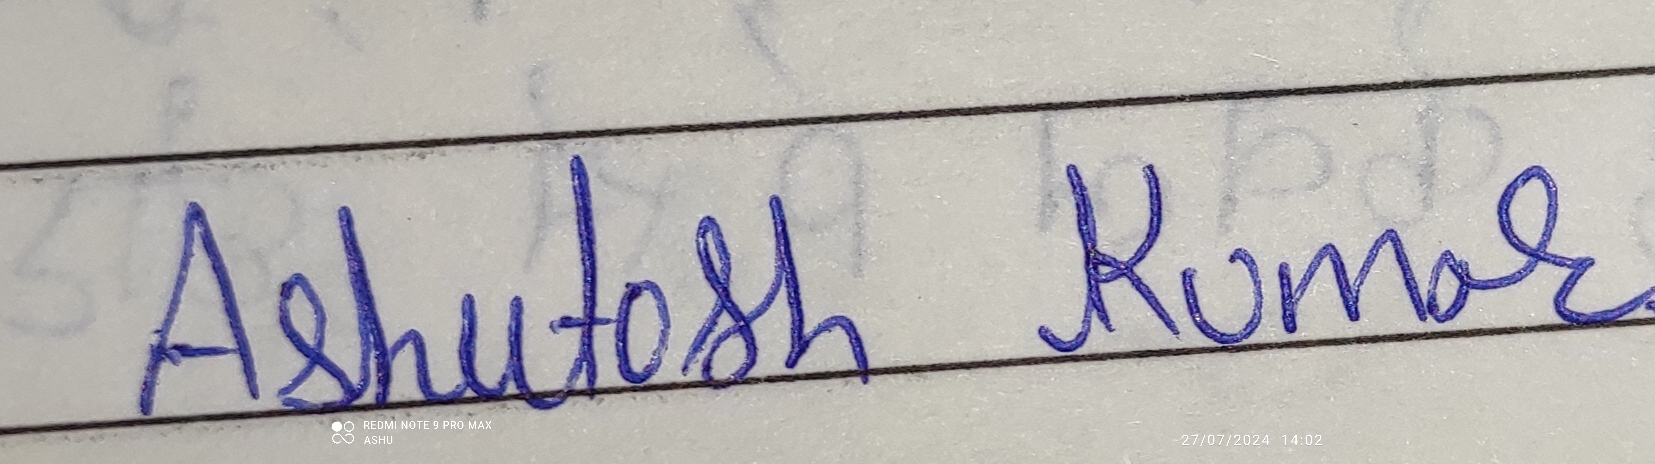 Ashutosh Kumar
REDMI NOTE 9 PRO MAX
ASHU
27/07/2024 14:02